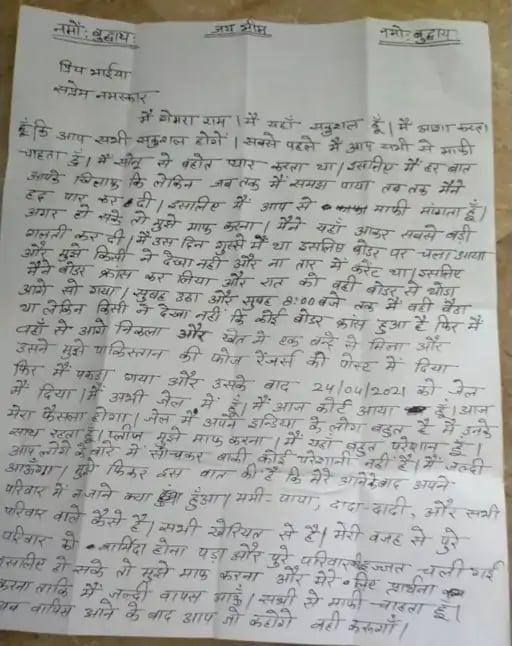 नमो: बुद्धाय: जय भीम नमो: बुद्धाय
प्रिय भाईया
सप्रेम नमस्कार
में गेमरा राम । में यहाँ सकुशल हूँ । में आशा करता
हूँ कि आप सभी सकुशल होगें । सबसे पहले में आप सभी से माफी
चाहता हूँ । में से बहोत प्यार करता था । इसलिए में हर बात
आपके खिलाफ कि लेकिन जब तक में समझ पाया तब तक मैंने
हद पार कर दी । इसलिए में आप से माफी मांगता हूँ ।
अगर हो सके तो मुझे माफ करना । मैंने यहाँ आकर सबसे बड़ी
गलती कर दी । में उस दिन गुस्से में था इसलिए बोडर पर चला आया
और मुझे किसी ने देखा नहीं और ना तार में करंट था । इसलिए
मैंने बोडर क्रोस कर लिया और रात को वही बोडर से थोडा
आगे सो गया । सुबह उठा और सुबह 8:00 बजे तक में वही बैठा
था लेकिन किसी ने देखा नहीं कि कोई बोडर क्रांस हुआ है फिर में
वहाँ से आगे निकला और खेत में एक बन्दे से मिला और
उसने मुझे पाकिस्तान की फोज रेंजर्स की पोस्ट में दिया
फिर में पकड़ा गया और उसके बाद 24/04/2021 को जेल
में दिया । में अभी जेल में हूँ । में आज कोर्ट आया हूँ । आज
मेरा फैसला होगा । जेल में अपने इन्डिया के लोग बहुत है में उनके
साथ रहता हूँ । प्लीज मुझे माफ करना । में यहाँ बहुत परेशान हूँ ।
आप लोगो के बारे में सोचकर बाकी कोई परेशानी नहीं है । में जल्दी
आऊगा । मुझे फिकर इस बात की है कि मेरे आने के बाद अपने
परिवार में न जाने क्या हुआ । ममी-पापा, दादा-दादी, और सभी
परिवार वाले कैसे है । सभी खेरियत से है । मेरी वजह से पुरे
परिवार को शर्मिदा होना पड़ा और पुरे परिवार इज्जत चली गई
इसलिए हो सके तो मुझे माफ करना और मेरे लिए प्रार्थना
करना ताकि में जल्दी वापस आऊँ । सभी से माफी चाहता हूँ ।
अब वापिस आने के बाद आप जो कहोगे वही करूगाँ ।